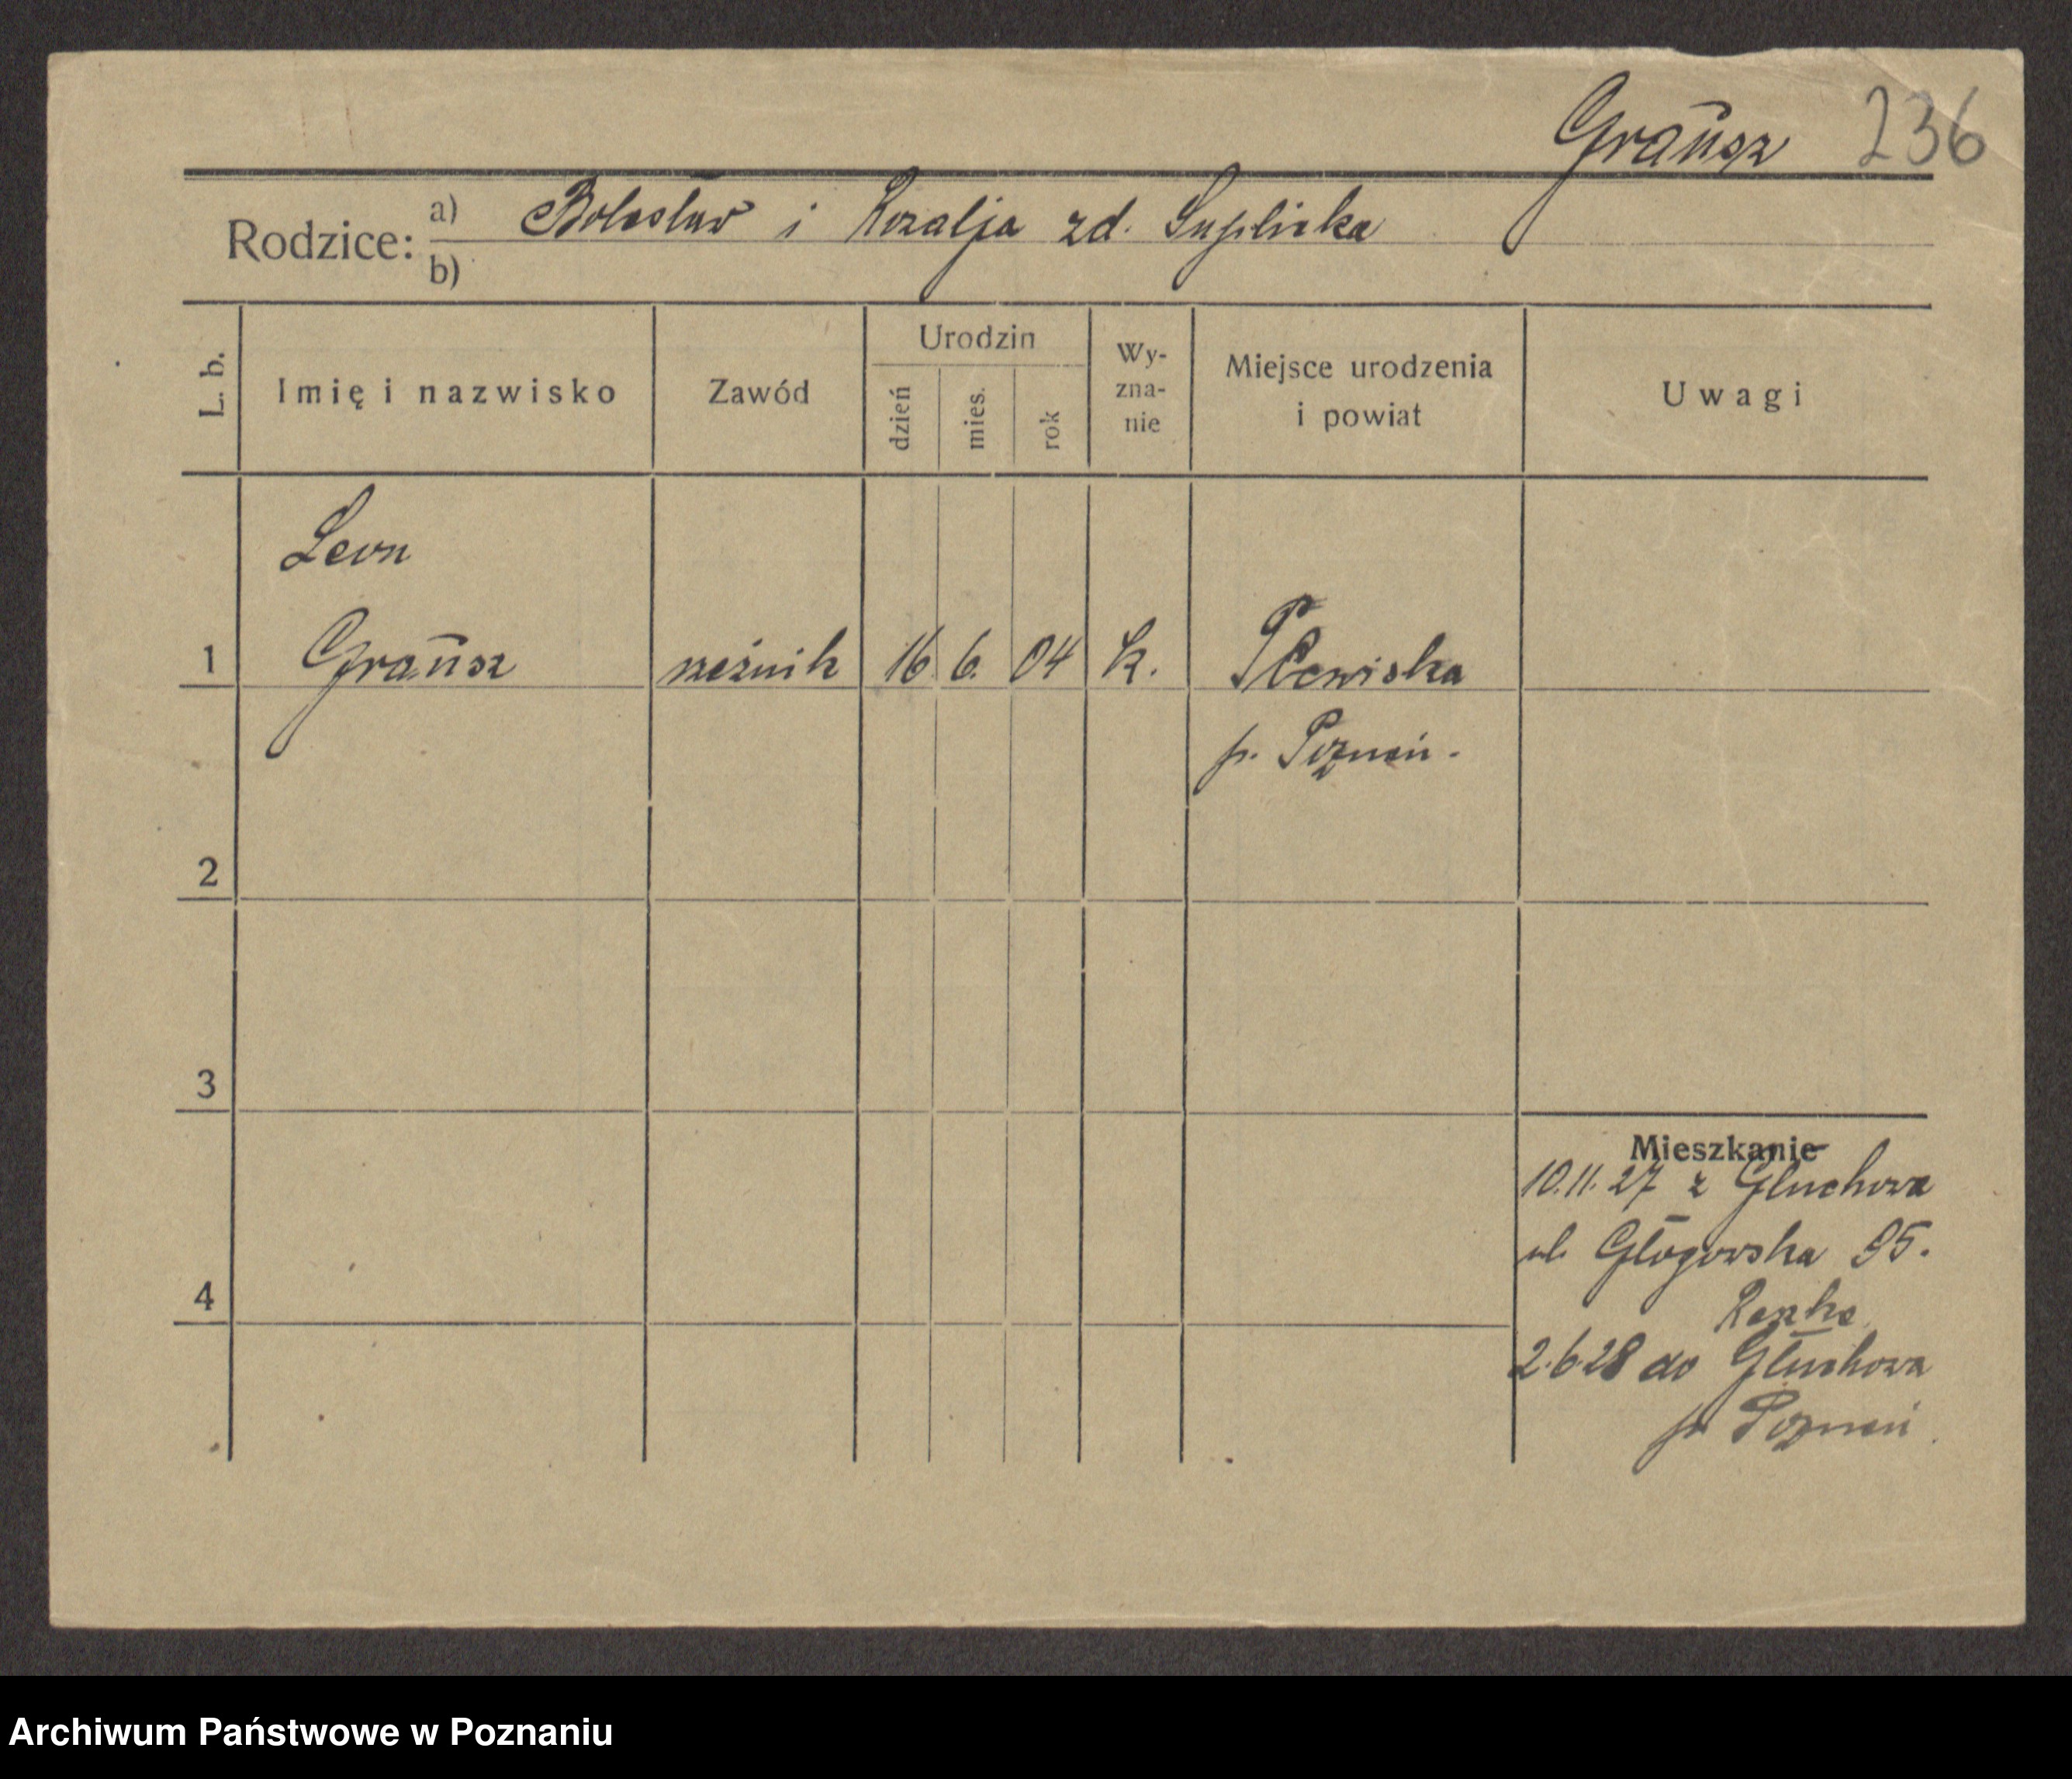 Grausz 236
Rodzice: a) Bolesław i Rozalja zd. Suplicka
b)
L. b. Imię i nazwisko Zawód Urodzin dzień mies. rok Wy-zna-nie Miejsce urodzenia i powiat Uwagi
Leon
1 Grausz rzeźnik 16 6. 04 k. Plewiska
p. Poznań.
2
3
Mieszkanie
10.11.27 z Głuchowa
ul. Głogowska 95.
4
2.6.28 do Głuchowa
p. Poznań
Archiwum Państwowe w Poznaniu